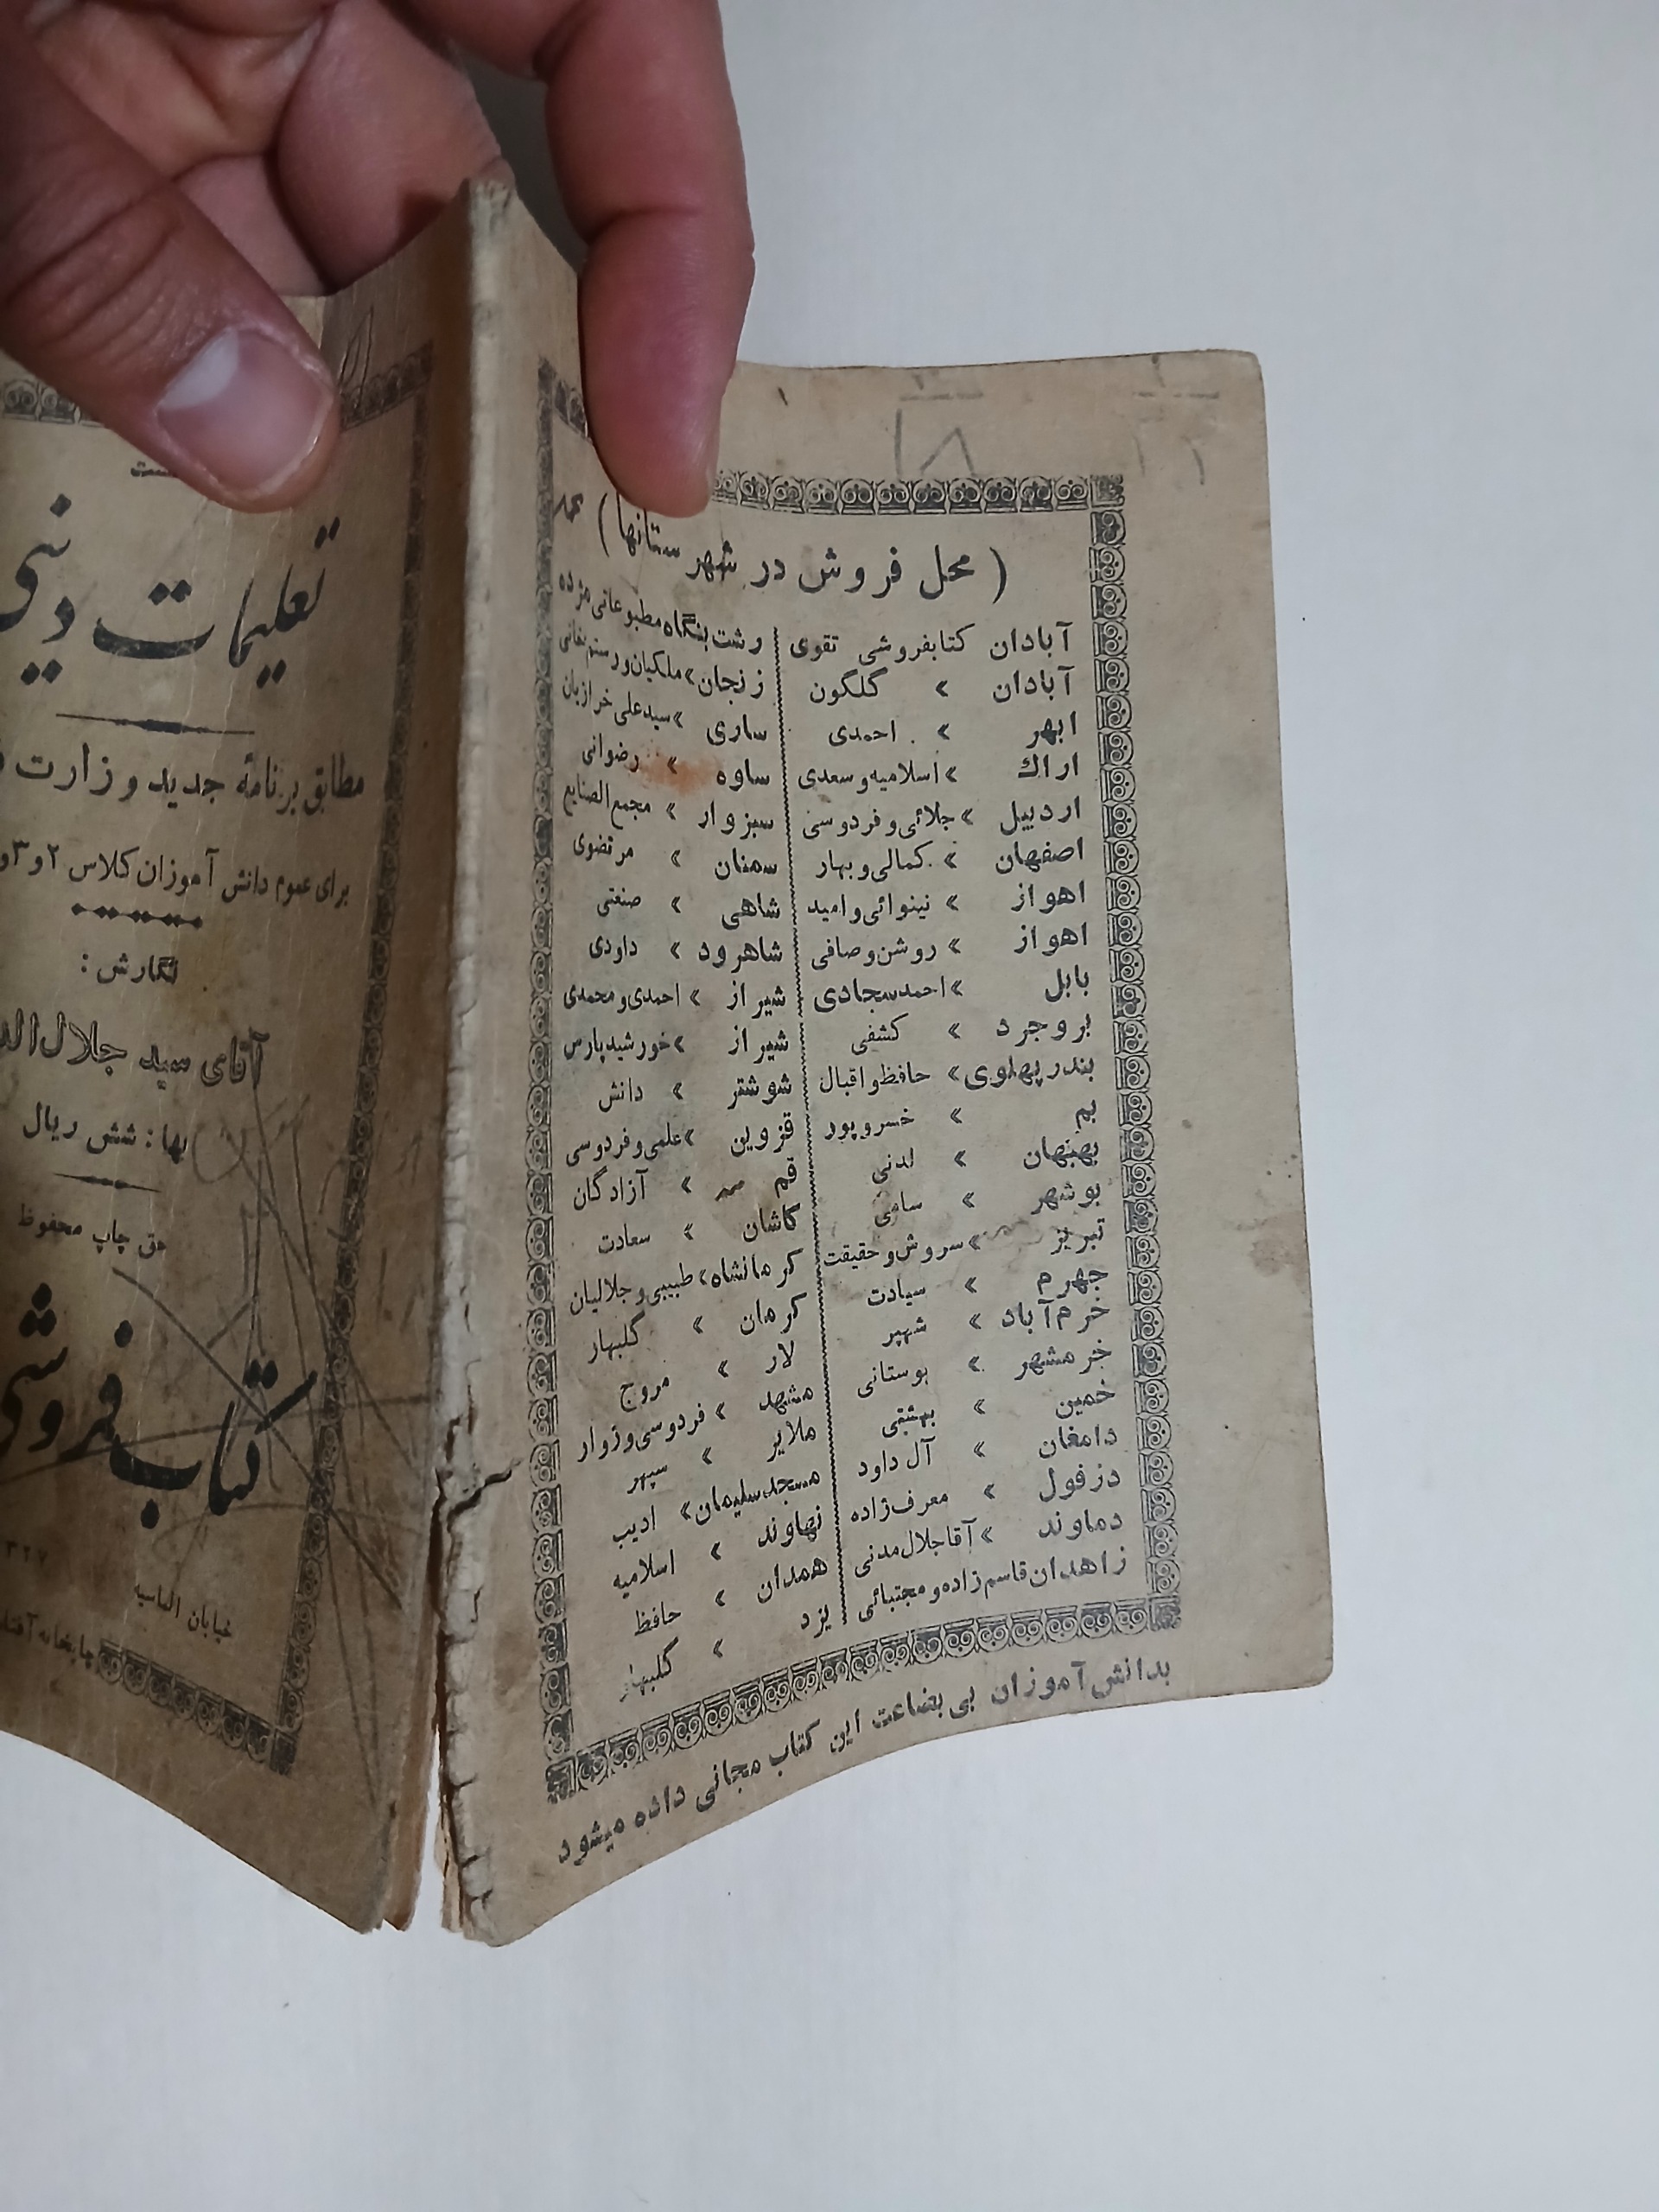 ( محل فروش در شهرستانها )
آبادان کتابفروشی تقوی
آبادان » گلگون
ابهر » احمدی
اراك » اسلامیه و سعدی
اردبیل » جلائی و فردوسی
اصفهان » کمالی و بهار
اهواز » نینوائی و امید
اهواز » روشن و صافی
بابل » احمد سجادی
بروجرد » کشفی
بندر پهلوی » حافظ و اقبال
بم » خسرو پور
بهبهان » لدنی
بوشهر » سامی
تبریز » سروش و حقیقت
جهرم » سیادت
خرم آباد » شهپر
خرمشهر » بوستانی
خمین » بهشتی
دامغان » آل داود
دزفول » معرف زاده
دماوند » آقا جلال مدنی
زاهدان قاسم زاده و مجتبائی
رشت بنگاه مطبوعاتی مژده
زنجان » ملکیان و رستم بغانی
ساری » سید علی خرازیان
ساوه » رضوانی
سبزوار » مجمع الصنایع
سمنان » مرتضوی
شاهی » صنعتی
شاهرود » داودی
شیراز » احمدی و محمدی
شیراز » خورشید پارس
شوشتر » دانش
قزوین » علمی و فردوسی
قم » آزادگان
کاشان » سعادت
کرمانشاه » طبیبی و جلالیان
کرمان » گلبهار
لار » مروج
مشهد » فردوسی و زوار
ملایر » سپهر
مسجد سلیمان » ادیب
نهاوند » اسلامیه
همدان » حافظ
یزد » گلبهار
بدانش آموزان بی بضاعت این کتاب مجانی داده میشود
تعلیمات دینی
مطابق برنامهٔ جدید وزارت
برای عموم دانش آموزان کلاس ۲ و ۳ و
نگارش :
آقای سید جلال
بها : شش ریال
حق چاپ محفوظ
کتابفروشی
خیابان الماسیه
چاپخانه آفتاب